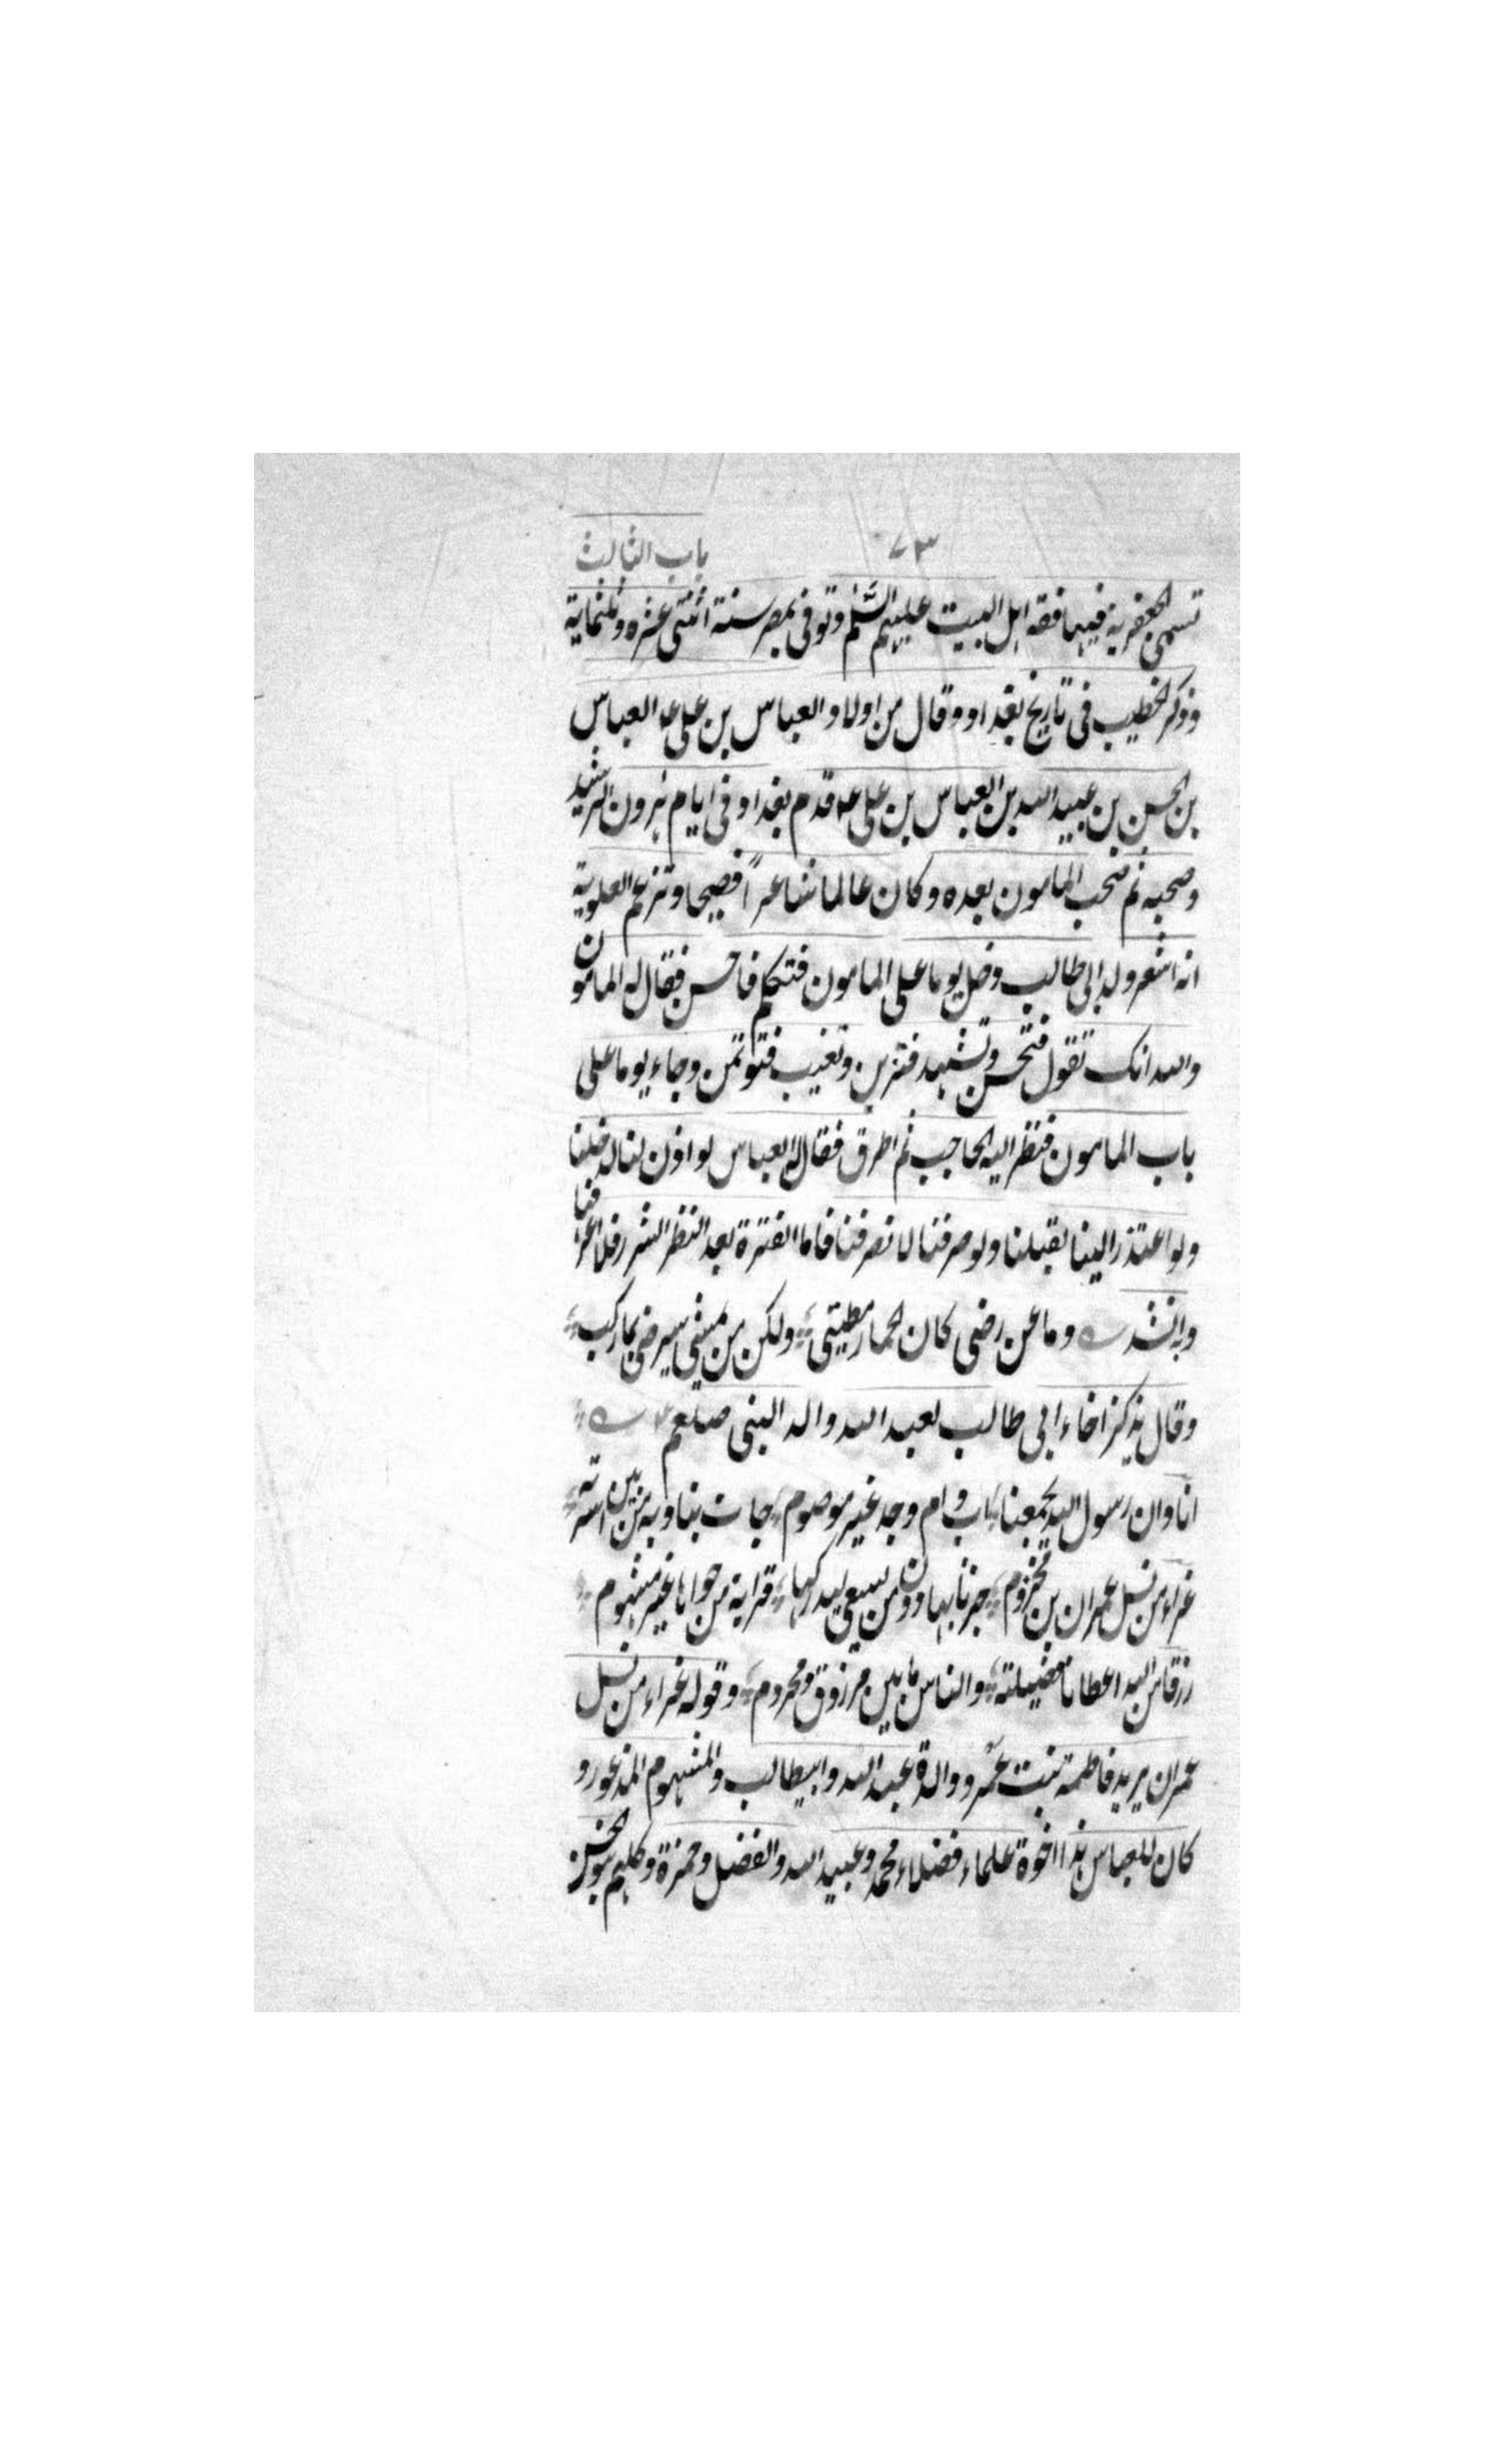 ٧٣ باب الثالث
تسمى الجعفرية فيها فقه اهل البيت عليهم السّلم وتوفى بمصر سنة اثنتى عشره وثلثماية
وذكر الخطيب فى تاريخ بغداد وقال من اولاد العباس بن على ع العباس
بن الحسن بن عبيد الله بن العباس بن على ع قدم بغداد فى ايام هرون الرشيد
وصحبه ثم صحب المامون بعده وكان عالما شاعراً فصيحا وتزعم العلوية
انه اشعر ولد ابى طالب ودخل يوما على المامون فتكلم فاحسن فقال له المامون
والله انك تقول فتحسن وتشهد فتزين وتغيب فتوتمن وجاء يوما على
باب المامون فنظر اليه الحاجب ثم اطرق فقال له العباس لو اذن لنا لدخلنا
ولو اعتذر الينا لقبلنا ولو صرفنا لانصرفنا فاما الفترة بعد النظر الشزر فلا اعرفنا
وانشد وما عن رضى كان الحمار مطيتى ولكن من يمشى سيرضى بما ركب
وقال يذكر اخاء ابى طالب لعبد الله والد النبى صلعم
انا وان رسول الله يجمعنا اب وام وجد غير موصوم جات بنا وبه من بين اسرته
غراء من نسل عمران بن مخزوم حزنا بها دون من يسعى ليدركها قرابة من حواها غير مشهوم
رزقا من الله اعطانا فضيلته والناس ما بين مرزوق ومحروم وقوله غراء من نسل
عمران يريد فاطمة بنت عمرو والدة عبد الله وابيطالب والمشهوم المذعور و
كان للعباس هذا اخوة علماء فضلاء محمد وعبيد الله والفضل وحمزة وكلهم بنو الحسن